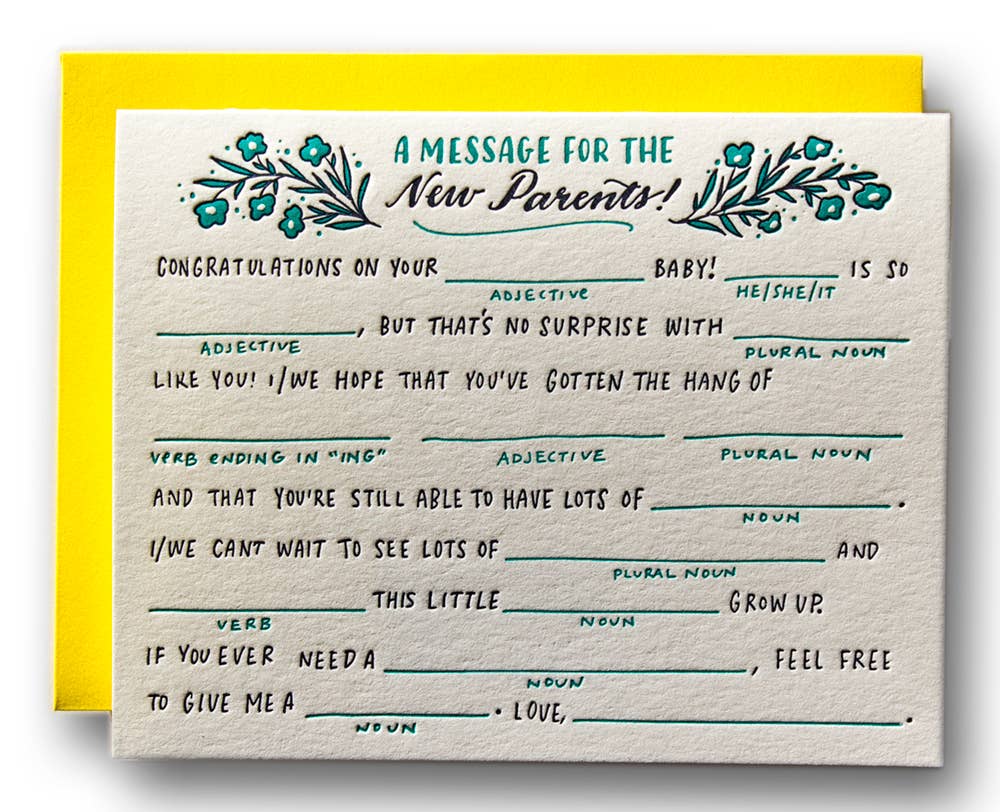 A MESSAGE FOR THE
New Parents!
CONGRATULATIONS ON YOUR ____________ BABY! ________ IS SO
ADJECTIVE HE/SHE/IT
____________, BUT THAT'S NO SURPRISE WITH ____________
ADJECTIVE PLURAL NOUN
LIKE YOU! I/WE HOPE THAT YOU'VE GOTTEN THE HANG OF
____________ ____________ ____________
VERB ENDING IN "ING" ADJECTIVE PLURAL NOUN
AND THAT YOU'RE STILL ABLE TO HAVE LOTS OF ____________.
NOUN
I/WE CANT WAIT TO SEE LOTS OF ____________ AND
PLURAL NOUN
____________ THIS LITTLE ____________ GROW UP.
VERB NOUN
IF YOU EVER NEED A ____________, FEEL FREE
NOUN
TO GIVE ME A ____________. LOVE, ____________.
NOUN